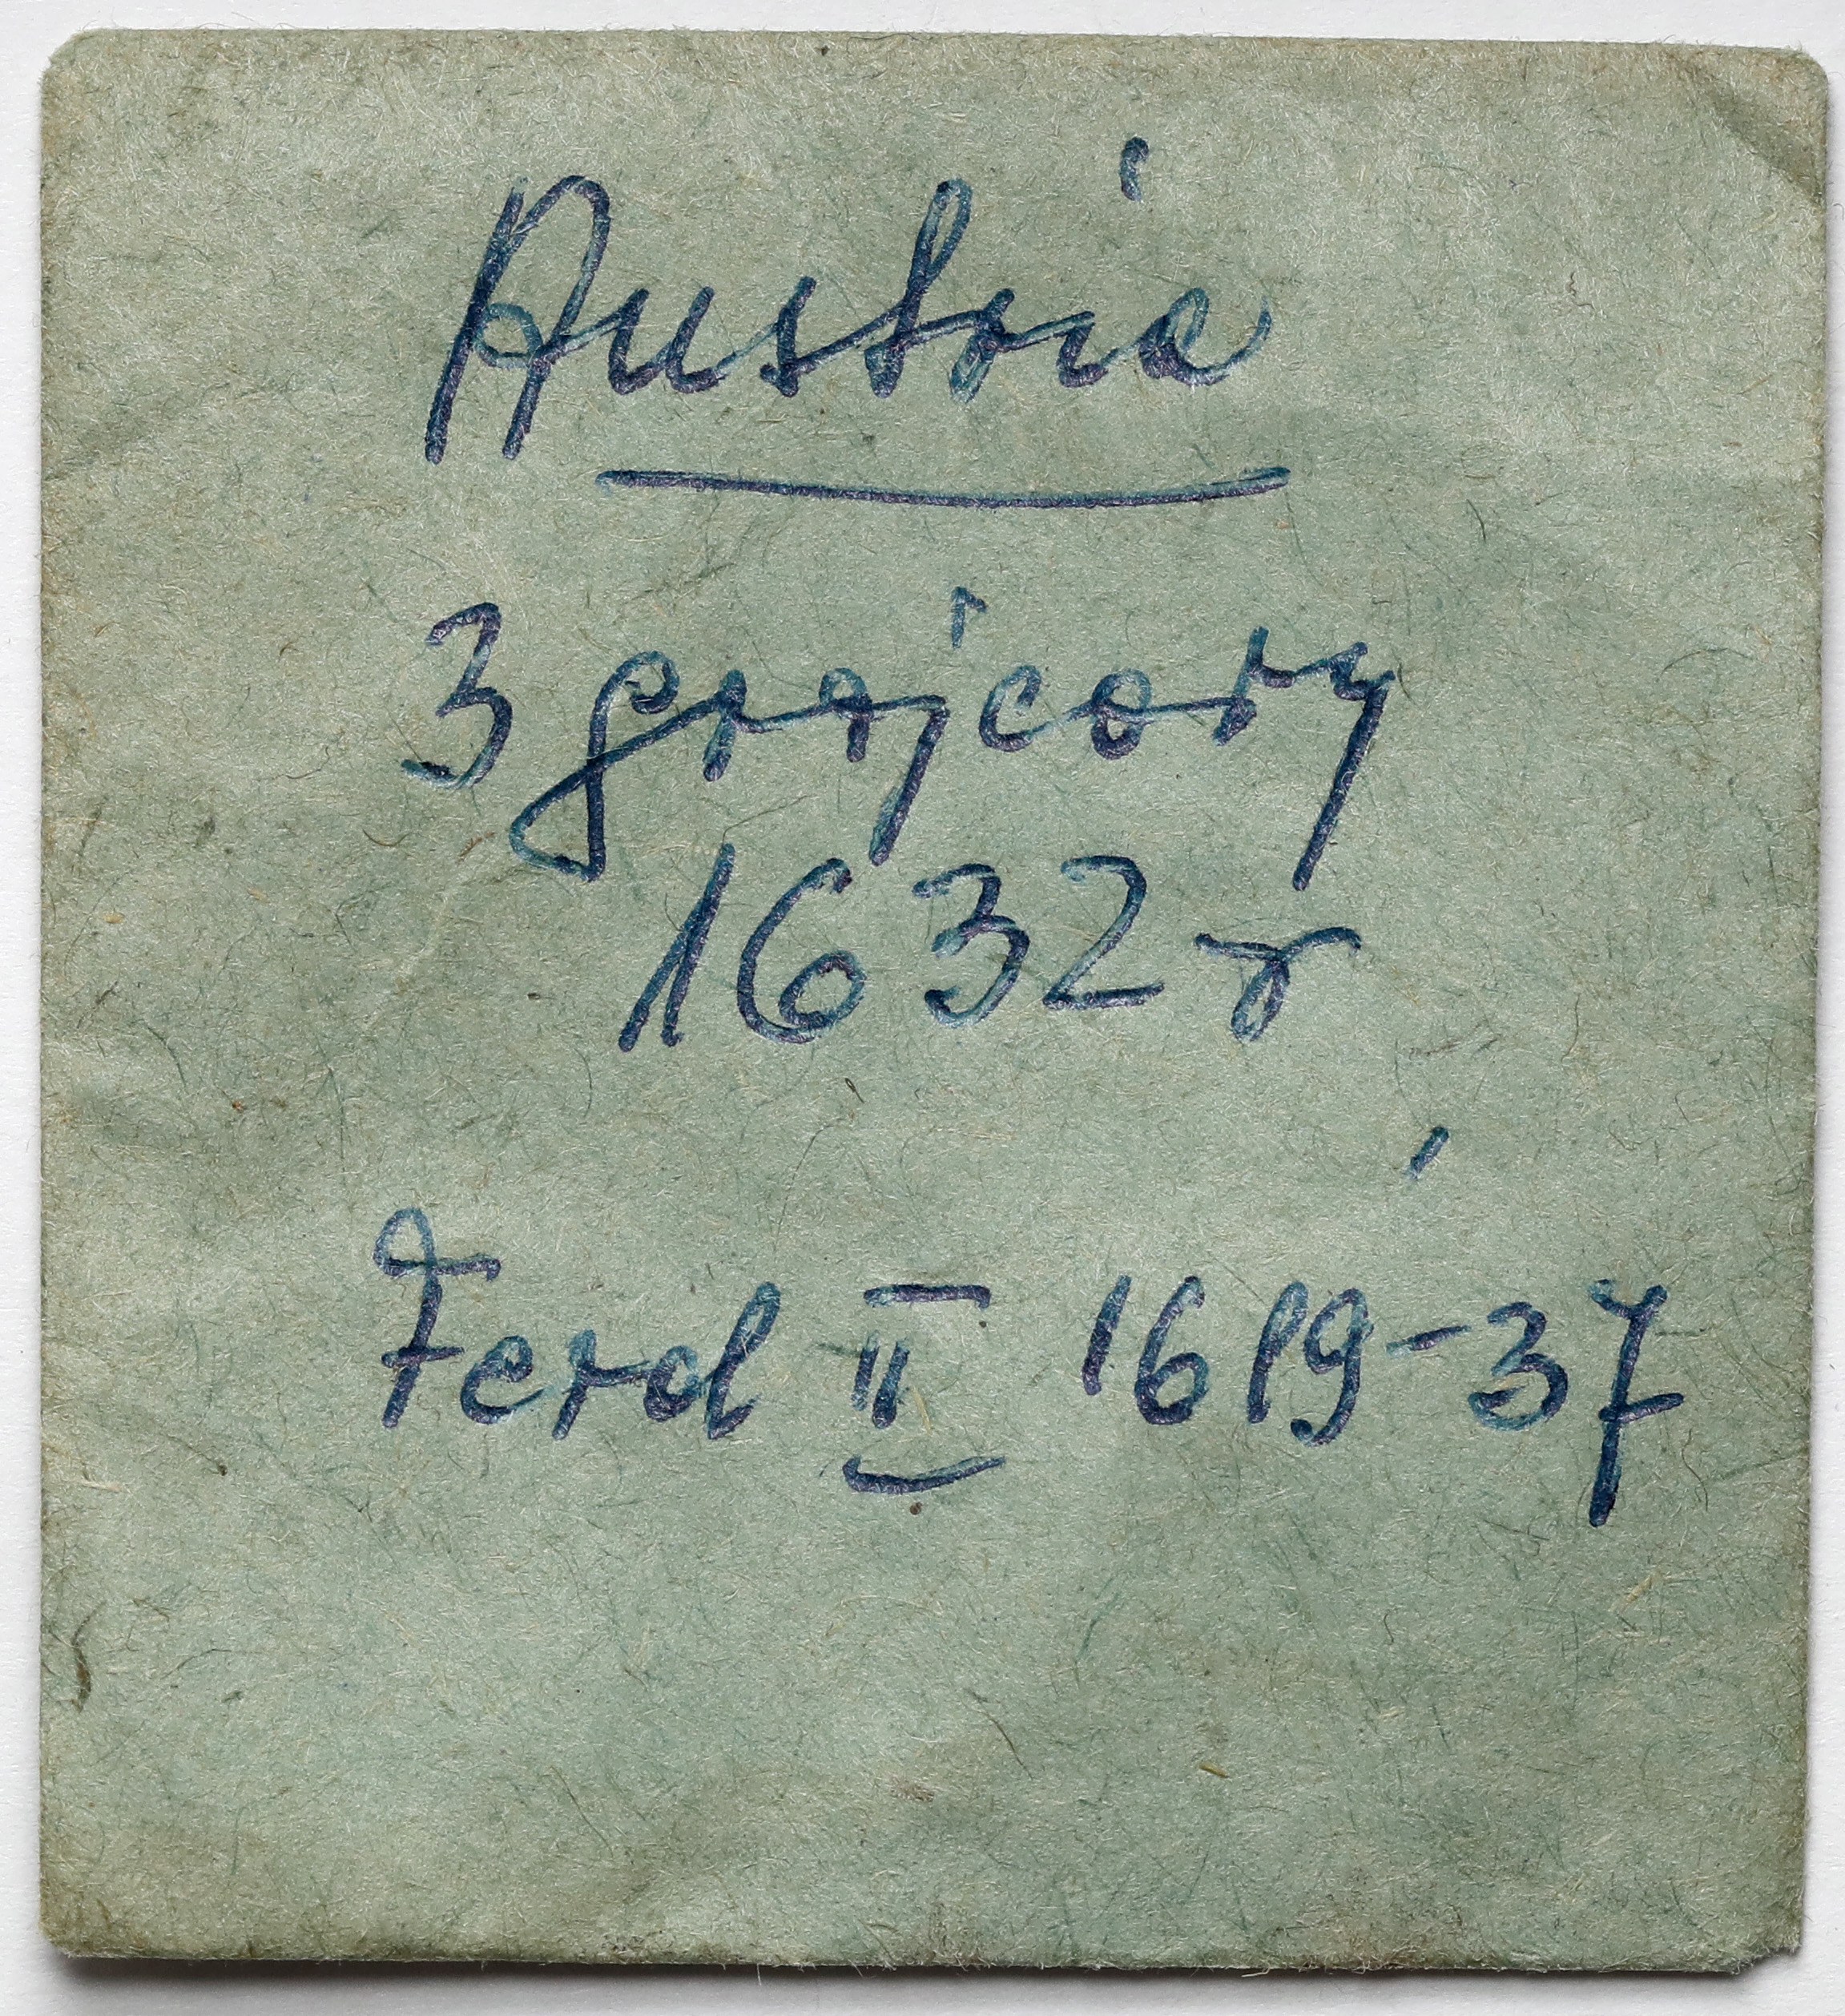 Austria
3 grajcary
1632 r
Ferd II 1619-37